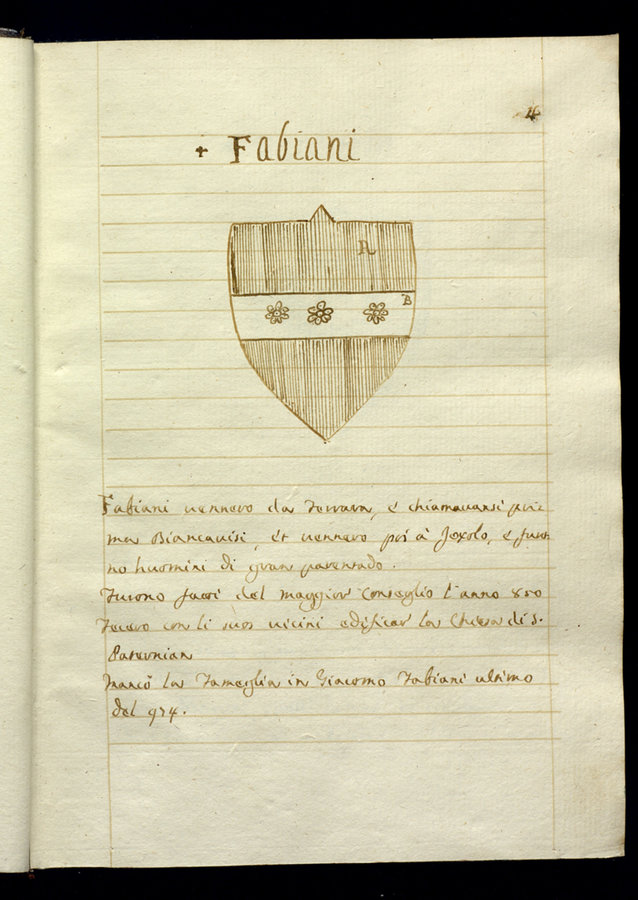 4
+ Fabiani
R
B
Fabiani vennero da Ferrara, è chiamavansi pri:
ma Biancavisi, et vennero poi à Jexolo, è furo:
no huomini di gran parentado.
Furono fatti del maggior Conseglio l'anno 850
Fecero con li suoi vicini edificar la Chiesa di S.
Paternian
Mancò la Fameglia in Giacomo Fabiani ultimo
del 974.